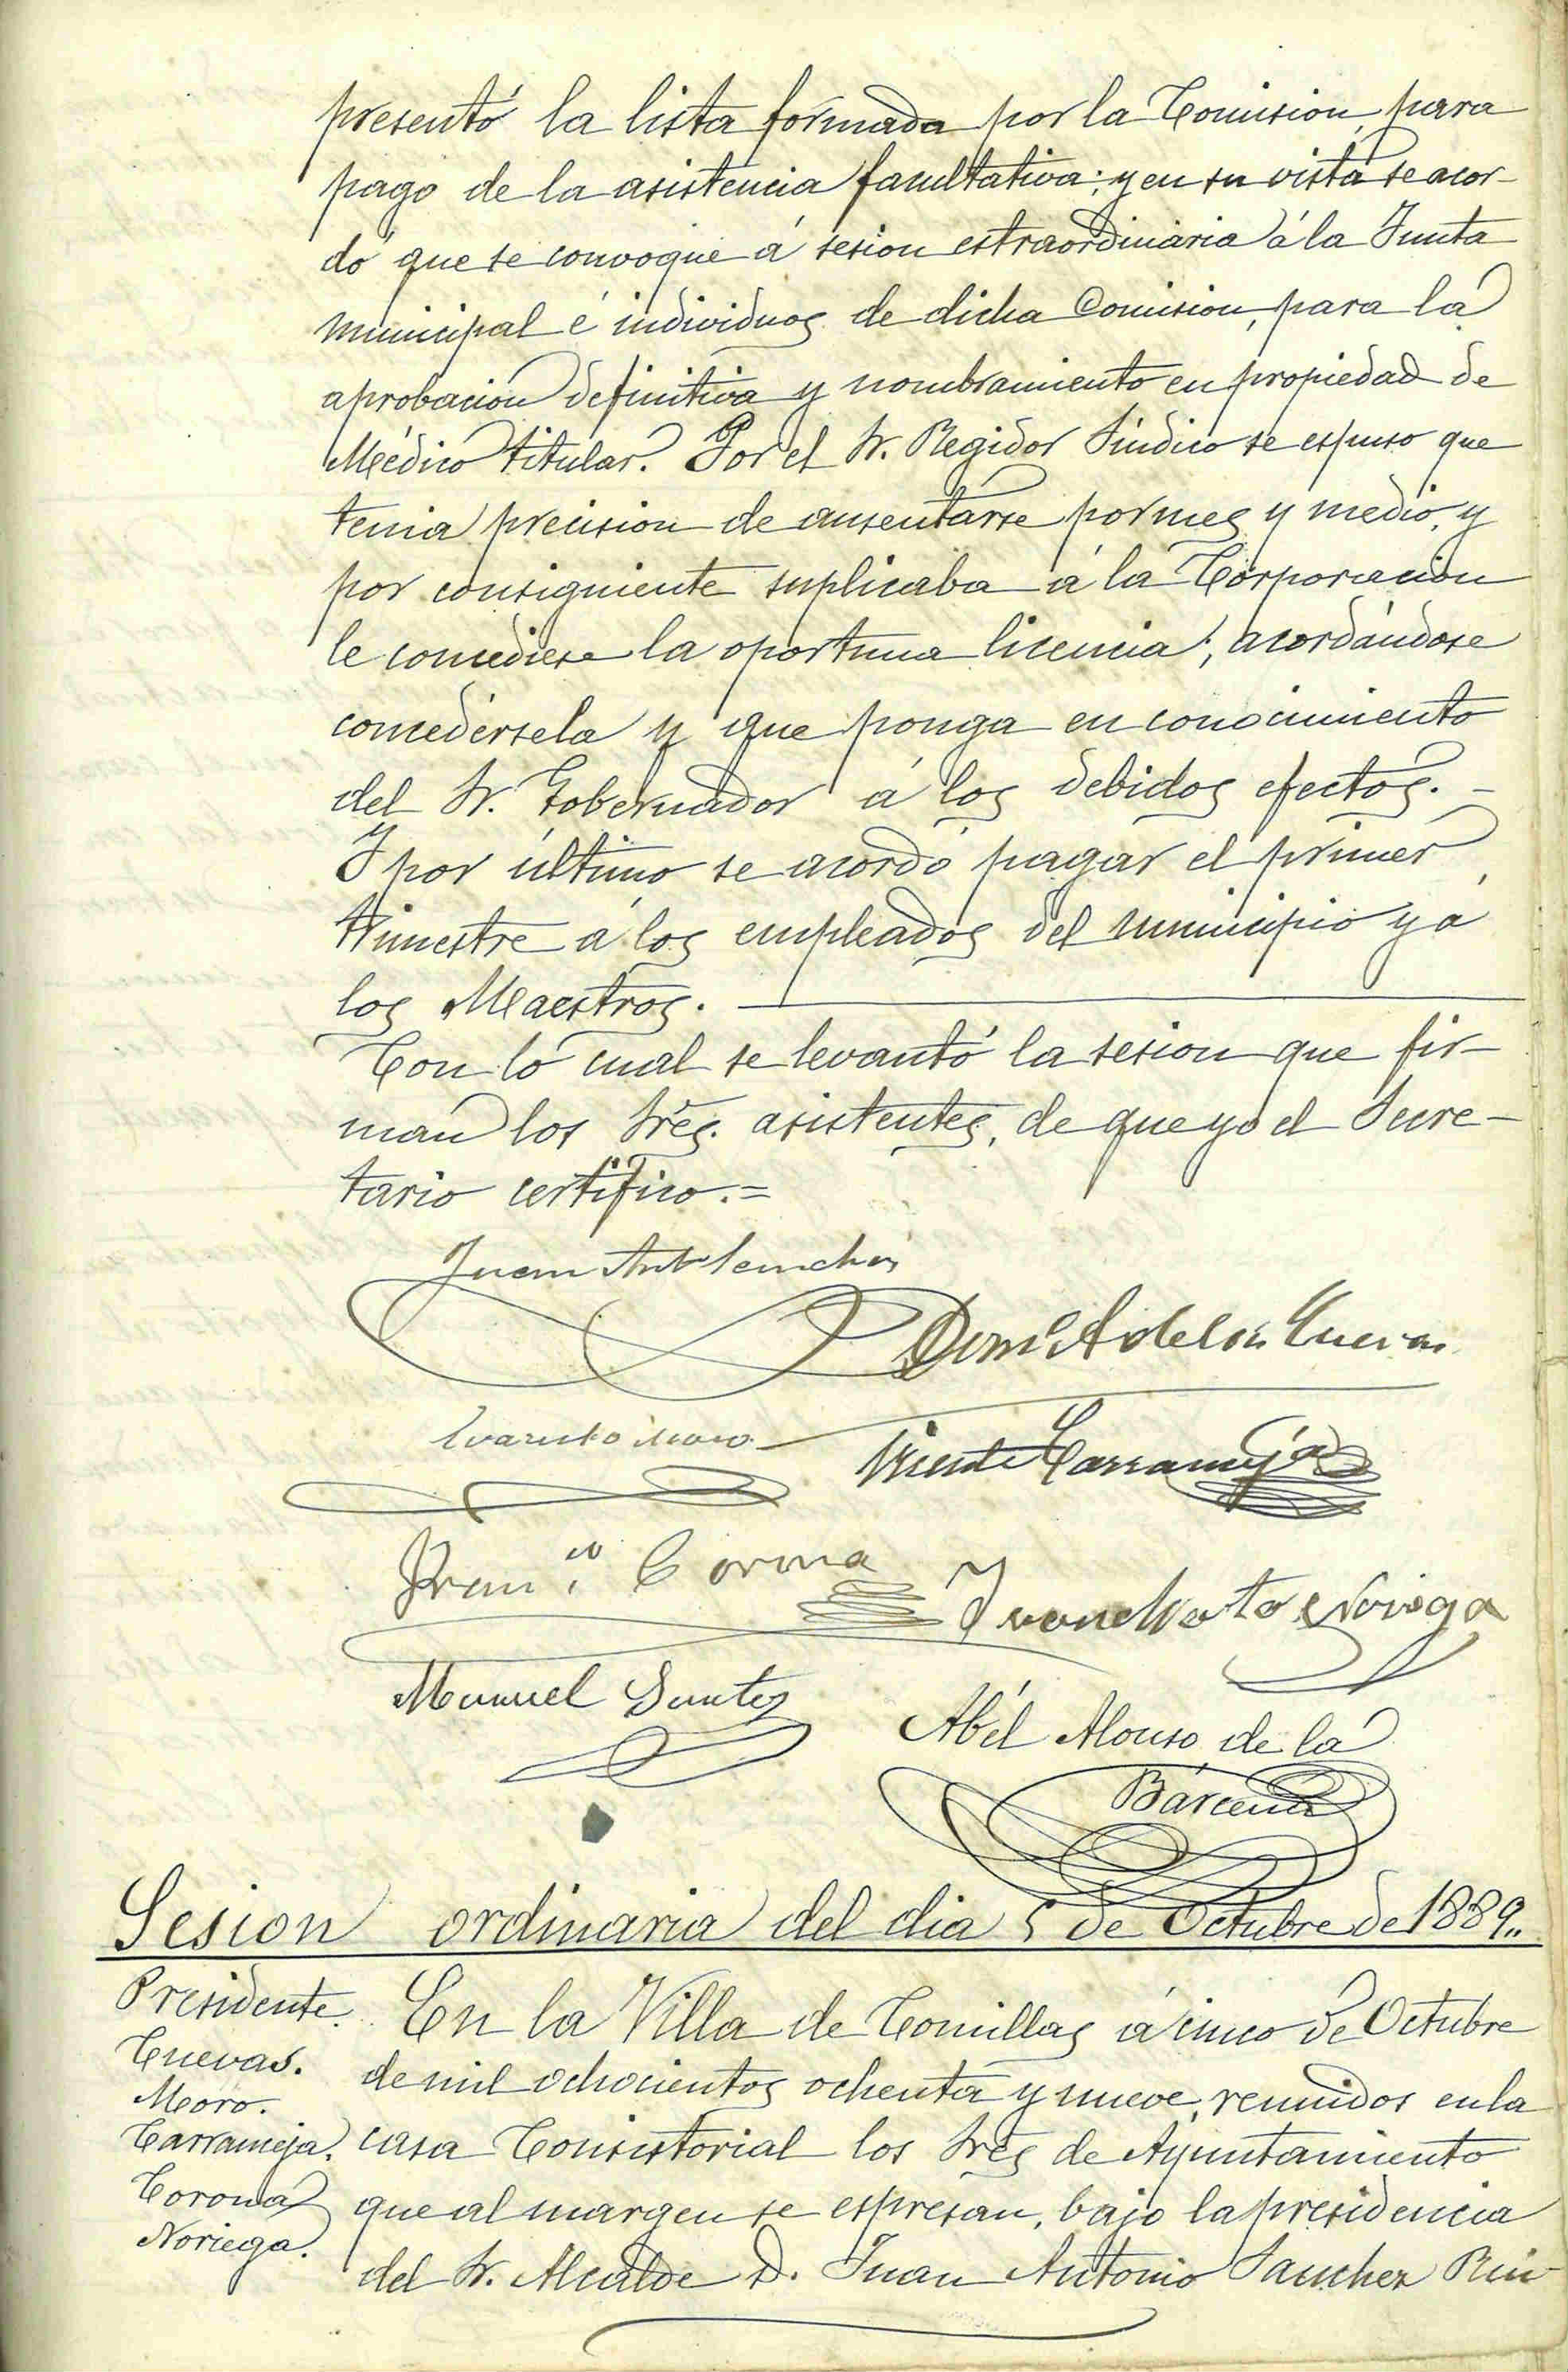 presentó la lista formada por la Comision, para
pago de la asistencia facultativa; y en su vista se acor-
dó que se convoque á sesion estraordinaria á la Junta
municipal é individuos de dicha Comision, para la
aprobacion definitiva y nombramiento en propiedad de
Médico titular. Por el Sr. Regidor Síndico se espuso que
tenia precision de ausentarse por mes y medio, y
por consiguiente suplicaba á la Corporacion
le concediese la oportuna licencia; acordándose
concedérsela y que ponga en conocimiento
del Sr. Gobernador á los debidos efectos. -
Y por último se acordó pagar el primer
trimestre á los empleados del municipio y á
los Maestros.
Con lo cual se levantó la sesion que fir-
man los Sres. asistentes, de que yo el Secre-
tario certifico.=
Juan Ant Sanchez
Dom A de las Cuevas
Evaristo Moro
Vicente Carrameja
Fran.co Corona
Juan Noriega
Manuel Santos
Abél Alonso de la
Bárcena
Sesion ordinaria del dia 5 de Octubre de 1889.
Presidente.
Cuevas.
Moro.
Carrameja.
Corona
Noriega.
En la Villa de Comillas á cinco de Octubre
de mil ochocientos ochenta y nueve, reunidos en la
casa Consistorial los Sres de Ayuntamiento
que al margen se espresan, bajo la presidencia
del Sr. Alcalde D. Juan Antonio Sanchez Rui-